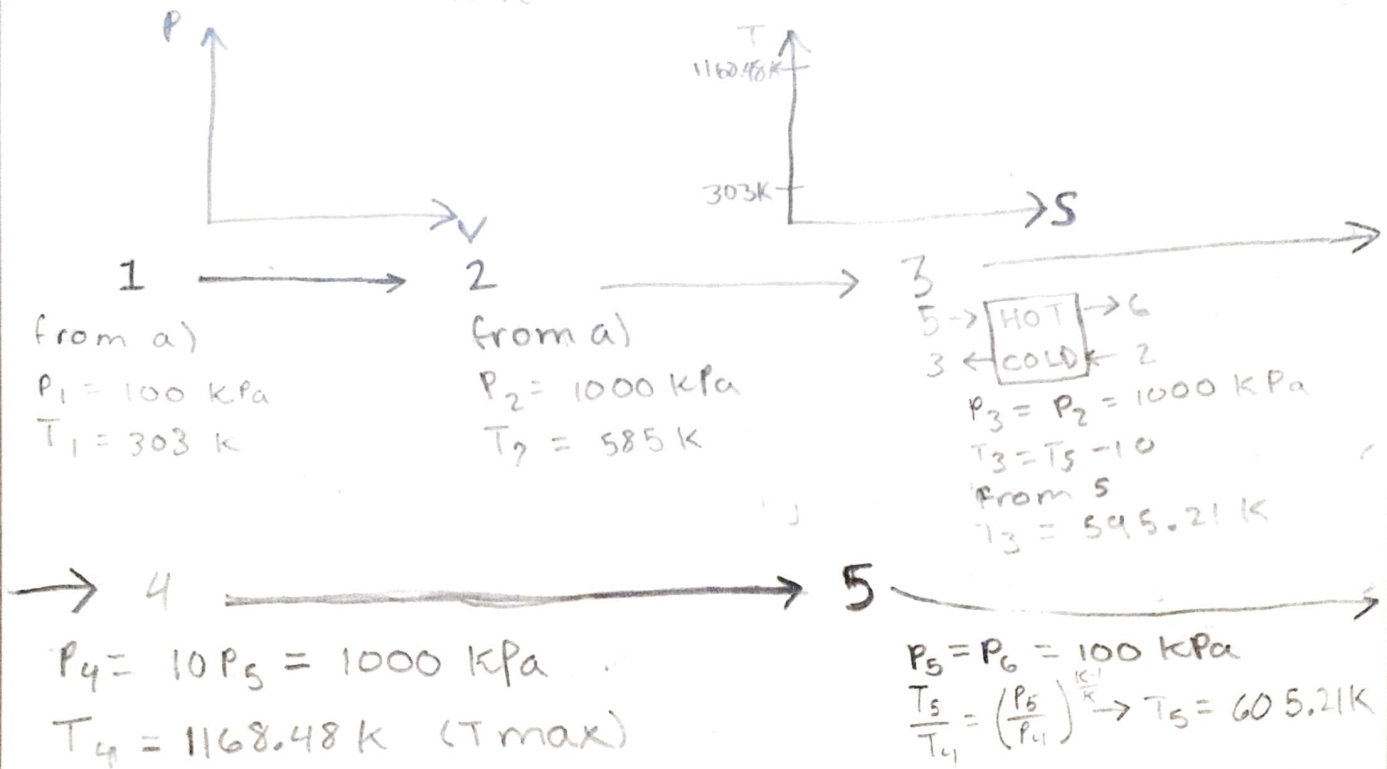 P
T
1168.48K
303K
V
S
1 → 2 → 3 →
5 → HOT → 6
3 ← COLD ← 2
from a)
P₁ = 100 kPa
T₁ = 303 K
from a)
P₂ = 1000 kPa
T₂ = 585 K
P₃ = P₂ = 1000 kPa
T₃ = T₅ - 10
from 5
T₃ = 595.21 K
→ 4 → 5 →
P₄ = 10P₅ = 1000 kPa
T₄ = 1168.48 K (Tmax)
P₅ = P₆ = 100 kPa
T₅/T₄ = (P₅/P₄)^((K-1)/K) → T₅ = 605.21K